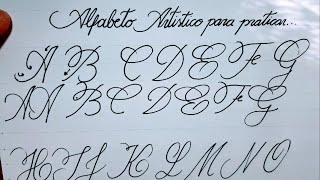 Alfabeto Artístico para praticar...
A B C D E F G
A A B C D E F G
H I J K L M N O